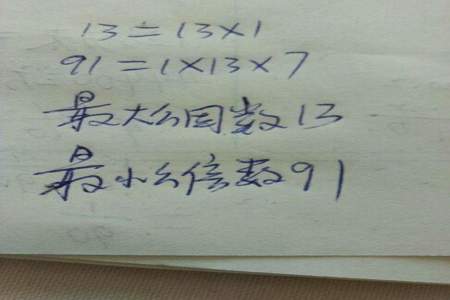 13=13×1
91=1×13×7
最大公因数13
最小公倍数91